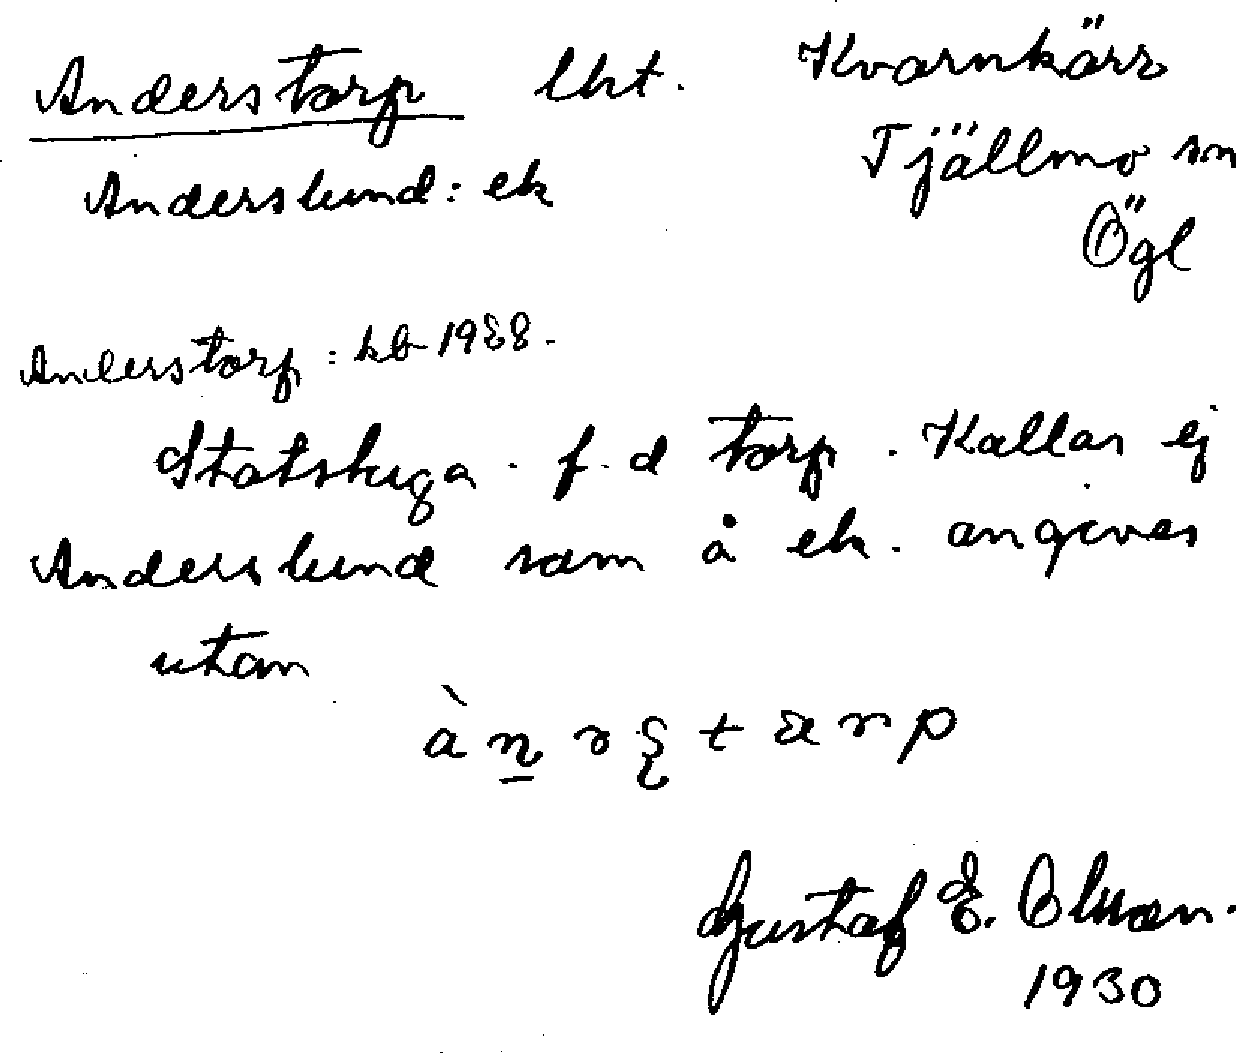 Anderstorp lht. Kvarnkärr
Tjällmo sn
Anderslund: ek
Ögl
Anderstorp: kb 1928.
Statstuga. f.d torp. Kallas ej
Anderslund som å ek. angives
utan
Gustaf E. Olsson.
1930